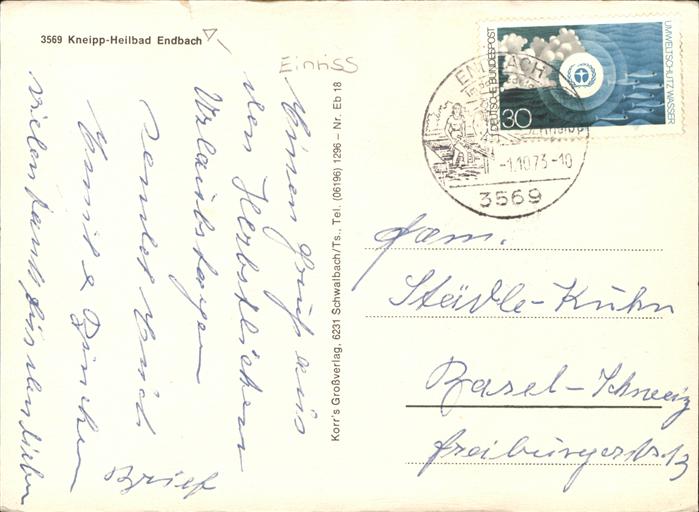 3569 Kneipp-Heilbad Endbach
Einriss
Einen Gruß aus
den Herbstlichen
Urlaubstagen
sendet Euch
&
vielen Dank für den lieben
Brief
Korr's Großverlag, 6231 Schwalbach/Ts., Tel. (06196) 1296 – Nr. Eb 18
DEUTSCHE BUNDESPOST
UMWELTSCHUTZ: WASSER
30
ENDBACH
-1.10.73-10
3569
Fam.
Städle-Kuhn
Basel-Schweiz
Freiburgerstr.